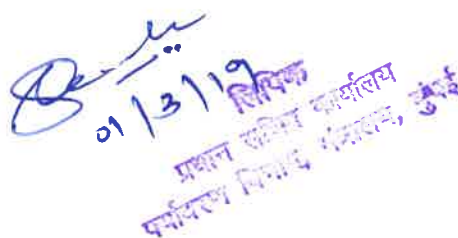 01/3/19
लिपिक
प्रधान सचिव कार्यालय
पर्यावरण विभाग, मंत्रालय, मुंबई